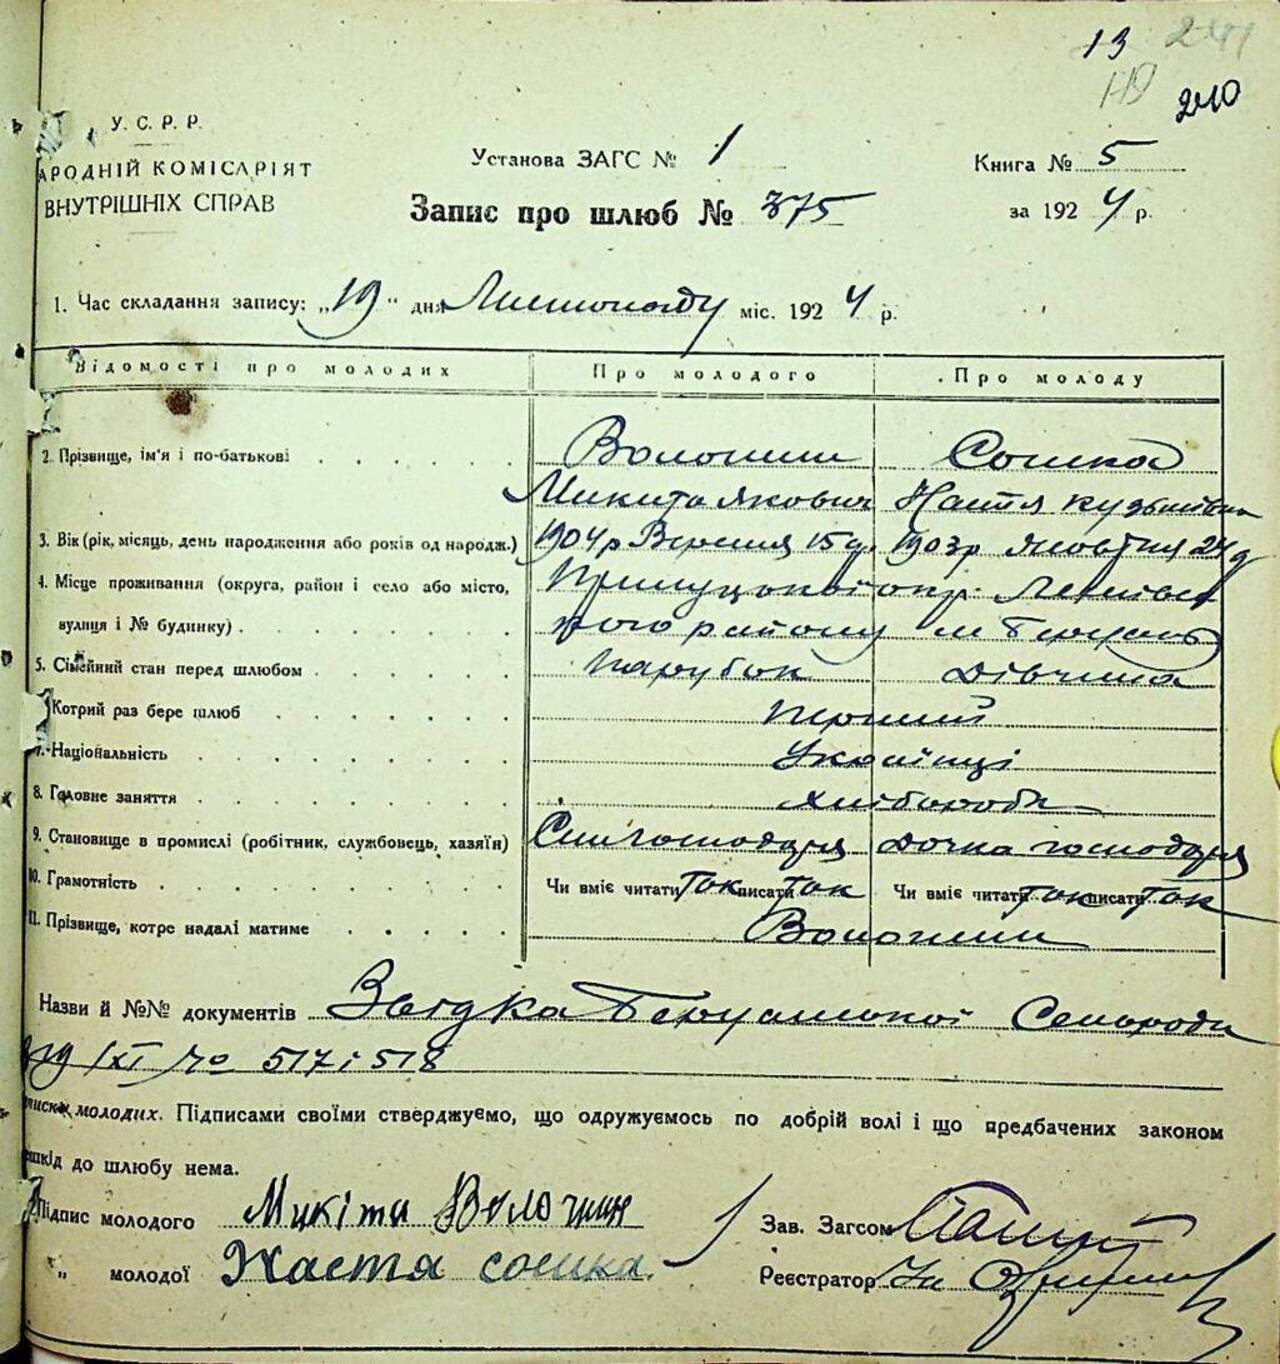 13 241
149 240
У. С. Р. Р.
АРОДНІЙ КОМІСАРІЯТ
ВНУТРІШНІХ СПРАВ
Установа ЗАГС № 1
Книга № 5
Запис про шлюб № 375
за 1924 р.
1. Час складання запису: „19“ дня Листопаду міс. 1924 р.
Відомості про молодих Про молодого Про молоду
2. Прізвище, ім'я і по-батькові Волошин Сошка
Микита Якович Настя Кузьмівна
3. Вік (рік, місяць, день народження або років од народж.) 1904 р Вересня 15 д. 1903 р Жовтня 24 д
4. Місце проживання (округа, район і село або місто, Прилуцької окр.
вулиця і № будинку) кого району м
5. Сімейний стан перед шлюбом Парубок Дівчина
Котрий раз бере шлюб перший
7. Національність Українці
8. Головне заняття хлібороби
9. Становище в промислі (робітник, службовець, хазяїн) Син господаря Дочка господаря
10. Грамотність Чи вміє читати так писати так Чи вміє читати так писати так
11. Прізвище, котре надалі матиме Волошин
Назви й №№ документів Звідка Сельради
19/XI № 517 і 518
писка молодих. Підписами своїми стверджуємо, що одружуємось по добрій волі і що предбачених законом
шкід до шлюбу нема.
Підпис молодого Микіта Волошин Зав. Загсом
„ молодої Настя сошка. Реєстратор